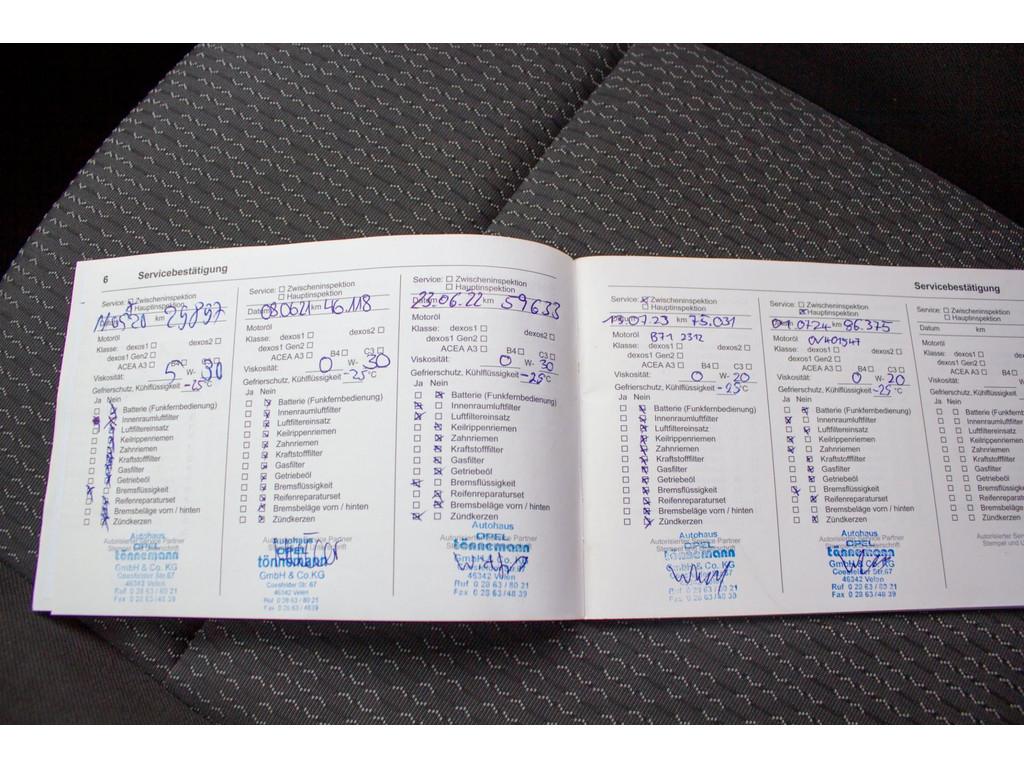 6 Servicebestätigung
Service: Zwischeninspektion
Hauptinspektion
20 km 29897
Motoröl
Klasse: dexos1
dexos2
dexos1 Gen2
ACEA A3 B4 C3
Viskosität: 5 W- 30
Gefrierschutz, Kühlflüssigkeit -25°C
Ja Nein
Batterie (Funkfernbedienung)
Innenraumluftfilter
Luftfiltereinsatz
Keilrippenriemen
Zahnriemen
Kraftstofffilter
Gasfilter
Getriebeöl
Bremsflüssigkeit
Reifenreparaturset
Bremsbeläge vorn / hinten
Zündkerzen
Autohaus
OPEL
tönnemann
GmbH & Co. KG
Coesfelder Str. 67
46342 Velen
Ruf 0 28 63 / 80 21
Fax 0 28 63 / 48 39
Service: Zwischeninspektion
Hauptinspektion
Datum 080621 km 46.118
Motoröl
Klasse: dexos1
dexos2
dexos1 Gen2
ACEA A3 B4 C3
Viskosität: 0 W- 30
Gefrierschutz, Kühlflüssigkeit -25°C
Ja Nein
Batterie (Funkfernbedienung)
Innenraumluftfilter
Luftfiltereinsatz
Keilrippenriemen
Zahnriemen
Kraftstofffilter
Gasfilter
Getriebeöl
Bremsflüssigkeit
Reifenreparaturset
Bremsbeläge vorn / hinten
Zündkerzen
Autohaus
OPEL
tönnemann
GmbH & Co. KG
Coesfelder Str. 67
46342 Velen
Ruf 0 28 63 / 80 21
Fax 0 28 63 / 48 39
Service: Zwischeninspektion
Hauptinspektion
Datum 23.06.22 km 59633
Motoröl
Klasse: dexos1
dexos2
dexos1 Gen2
ACEA A3 B4 C3
Viskosität: 0 W- 30
Gefrierschutz, Kühlflüssigkeit -25°C
Ja Nein
Batterie (Funkfernbedienung)
Innenraumluftfilter
Luftfiltereinsatz
Keilrippenriemen
Zahnriemen
Kraftstofffilter
Gasfilter
Getriebeöl
Bremsflüssigkeit
Reifenreparaturset
Bremsbeläge vorn / hinten
Zündkerzen
Autohaus
OPEL
tönnemann
GmbH & Co. KG
46342 Velen
Ruf 0 28 63 / 80 21
Fax 0 28 63 / 48 39
Servicebestätigung
Service: Zwischeninspektion
Hauptinspektion
13 07 23 km 75.031
Motoröl B71 2312
Klasse: dexos1
dexos2
dexos1 Gen2
ACEA A3 B4 C3
Viskosität: 0 W- 20
Gefrierschutz, Kühlflüssigkeit -25°C
Ja Nein
Batterie (Funkfernbedienung)
Innenraumluftfilter
Luftfiltereinsatz
Keilrippenriemen
Zahnriemen
Kraftstofffilter
Gasfilter
Getriebeöl
Bremsflüssigkeit
Reifenreparaturset
Bremsbeläge vorn / hinten
Zündkerzen
Autohaus
OPEL
tönnemann
GmbH & Co. KG
46342 Velen
Ruf 0 28 63 / 80 21
Fax 0 28 63 / 48 39
Service: Zwischeninspektion
Hauptinspektion
0724 km 86.375
Motoröl OV401547
Klasse: dexos1
dexos2
dexos1 Gen2
ACEA A3 B4 C3
Viskosität: 0 W- 20
Gefrierschutz, Kühlflüssigkeit -25°C
Ja Nein
Batterie (Funkfernbedienung)
Innenraumluftfilter
Luftfiltereinsatz
Keilrippenriemen
Zahnriemen
Kraftstofffilter
Gasfilter
Getriebeöl
Bremsflüssigkeit
Reifenreparaturset
Bremsbeläge vorn / hinten
Zündkerzen
Autohaus
OPEL
tönnemann
GmbH & Co. KG
Coesfelder Str. 67
46342 Velen
Ruf 0 28 63 / 80 21
Fax 0 28 63 / 48 39
Service: Zwischeninspektion
Hauptinspektion
Datum km
Motoröl
Klasse: dexos1
dexos1 Gen2
ACEA A3
Viskosität:
Gefrierschutz, Kühlflüssigkeit
Ja Nein
Batterie (Funkfernb
Innenraumluftfilter
Luftfiltereinsatz
Keilrippenriemen
Zahnriemen
Kraftstofffilter
Gasfilter
Getriebeöl
Bremsflüssigkeit
Reifenreparaturs
Bremsbeläge vor
Zündkerzen
Autorisierter Se
Stempel und U